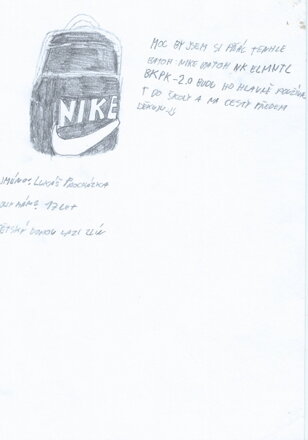 NIKE
MOC BY JSEM SI PŘÁL TENHLE
BATOH: NIKE BATOH NK ELMNTL
BKPK-2.0 BUDU HO HLAVNĚ POUŽÍVA
T DO ŠKOLY A NA CESTY PŘEDEM
DĚKUJI
JMÉNO: LUKÁŠ PROCHÁZKA
MÁM: 17 LET
DĚTSKÝ DOMOV LAZY ZLÍN